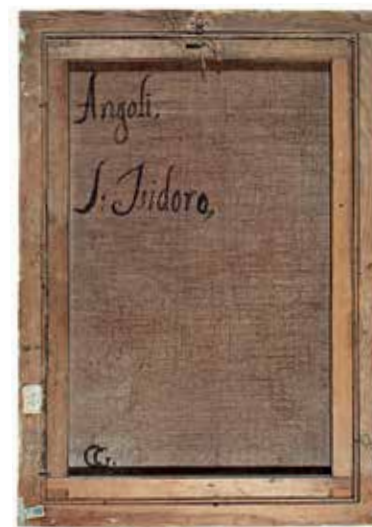 Angoli.
S. Isidoro,
G.